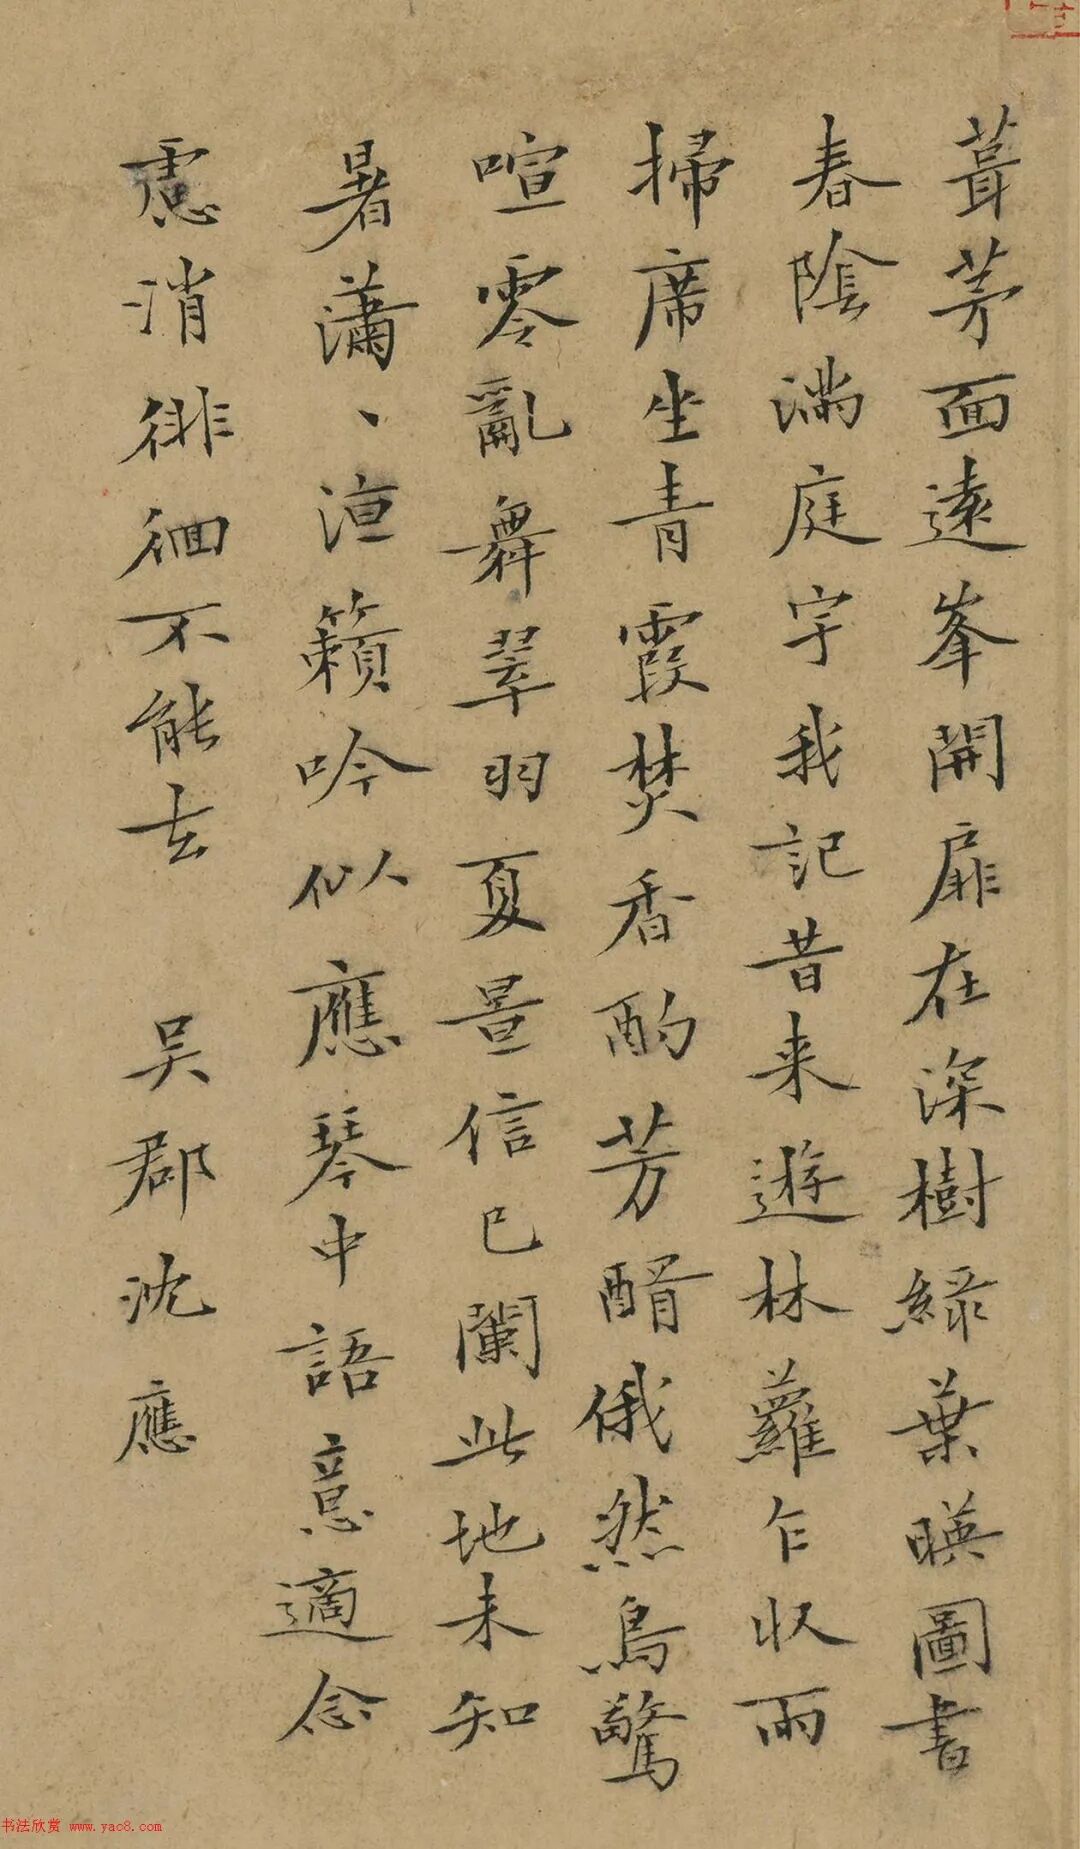 葺茅面遠峯開扉在深樹緑葉暎圖書
春陰滿庭宇我記昔来遊林蘿乍収雨
掃席坐青霞焚香酌芳醑俄然鳥驚
喧零亂舞翠羽夏景信已闌此地未知
暑瀟、洹籟吟似應琴中語意適念
慮消徘徊不能去 吴郡沈應
书法欣赏 www.yac8.com